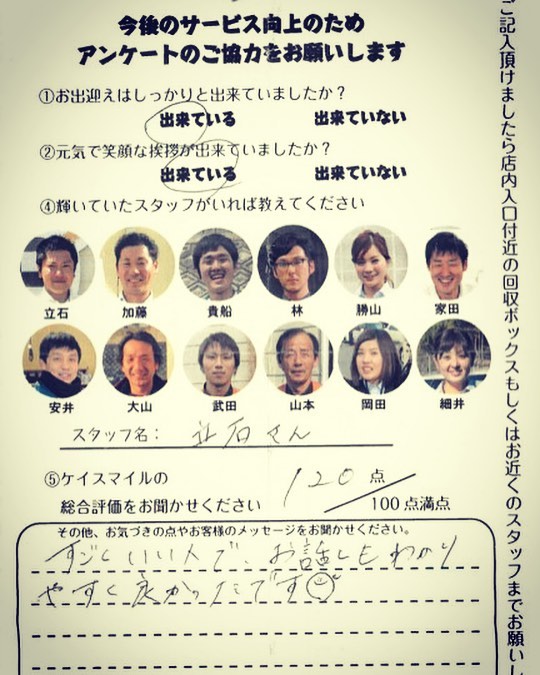 今後のサービス向上のため
アンケートのご協力をお願いします
①お出迎えはしっかりと出来ていましたか？
出来ている 出来ていない
②元気で笑顔な挨拶が出来ていましたか？
出来ている 出来ていない
④輝いていたスタッフがいれば教えてください
立石 加藤 貴船 林 勝山 家田
安井 大山 武田 山本 岡田 細井
スタッフ名： 立石さん
⑤ケイスマイルの
総合評価をお聞かせください 120点
100点満点
その他、お気づきの点やお客様のメッセージをお聞かせください。
すごくいい人で、お話しもわかり
やすく良かったです
ご記入頂けましたら店内入口付近の回収ボックスもしくはお近くのスタッフまでお願いし